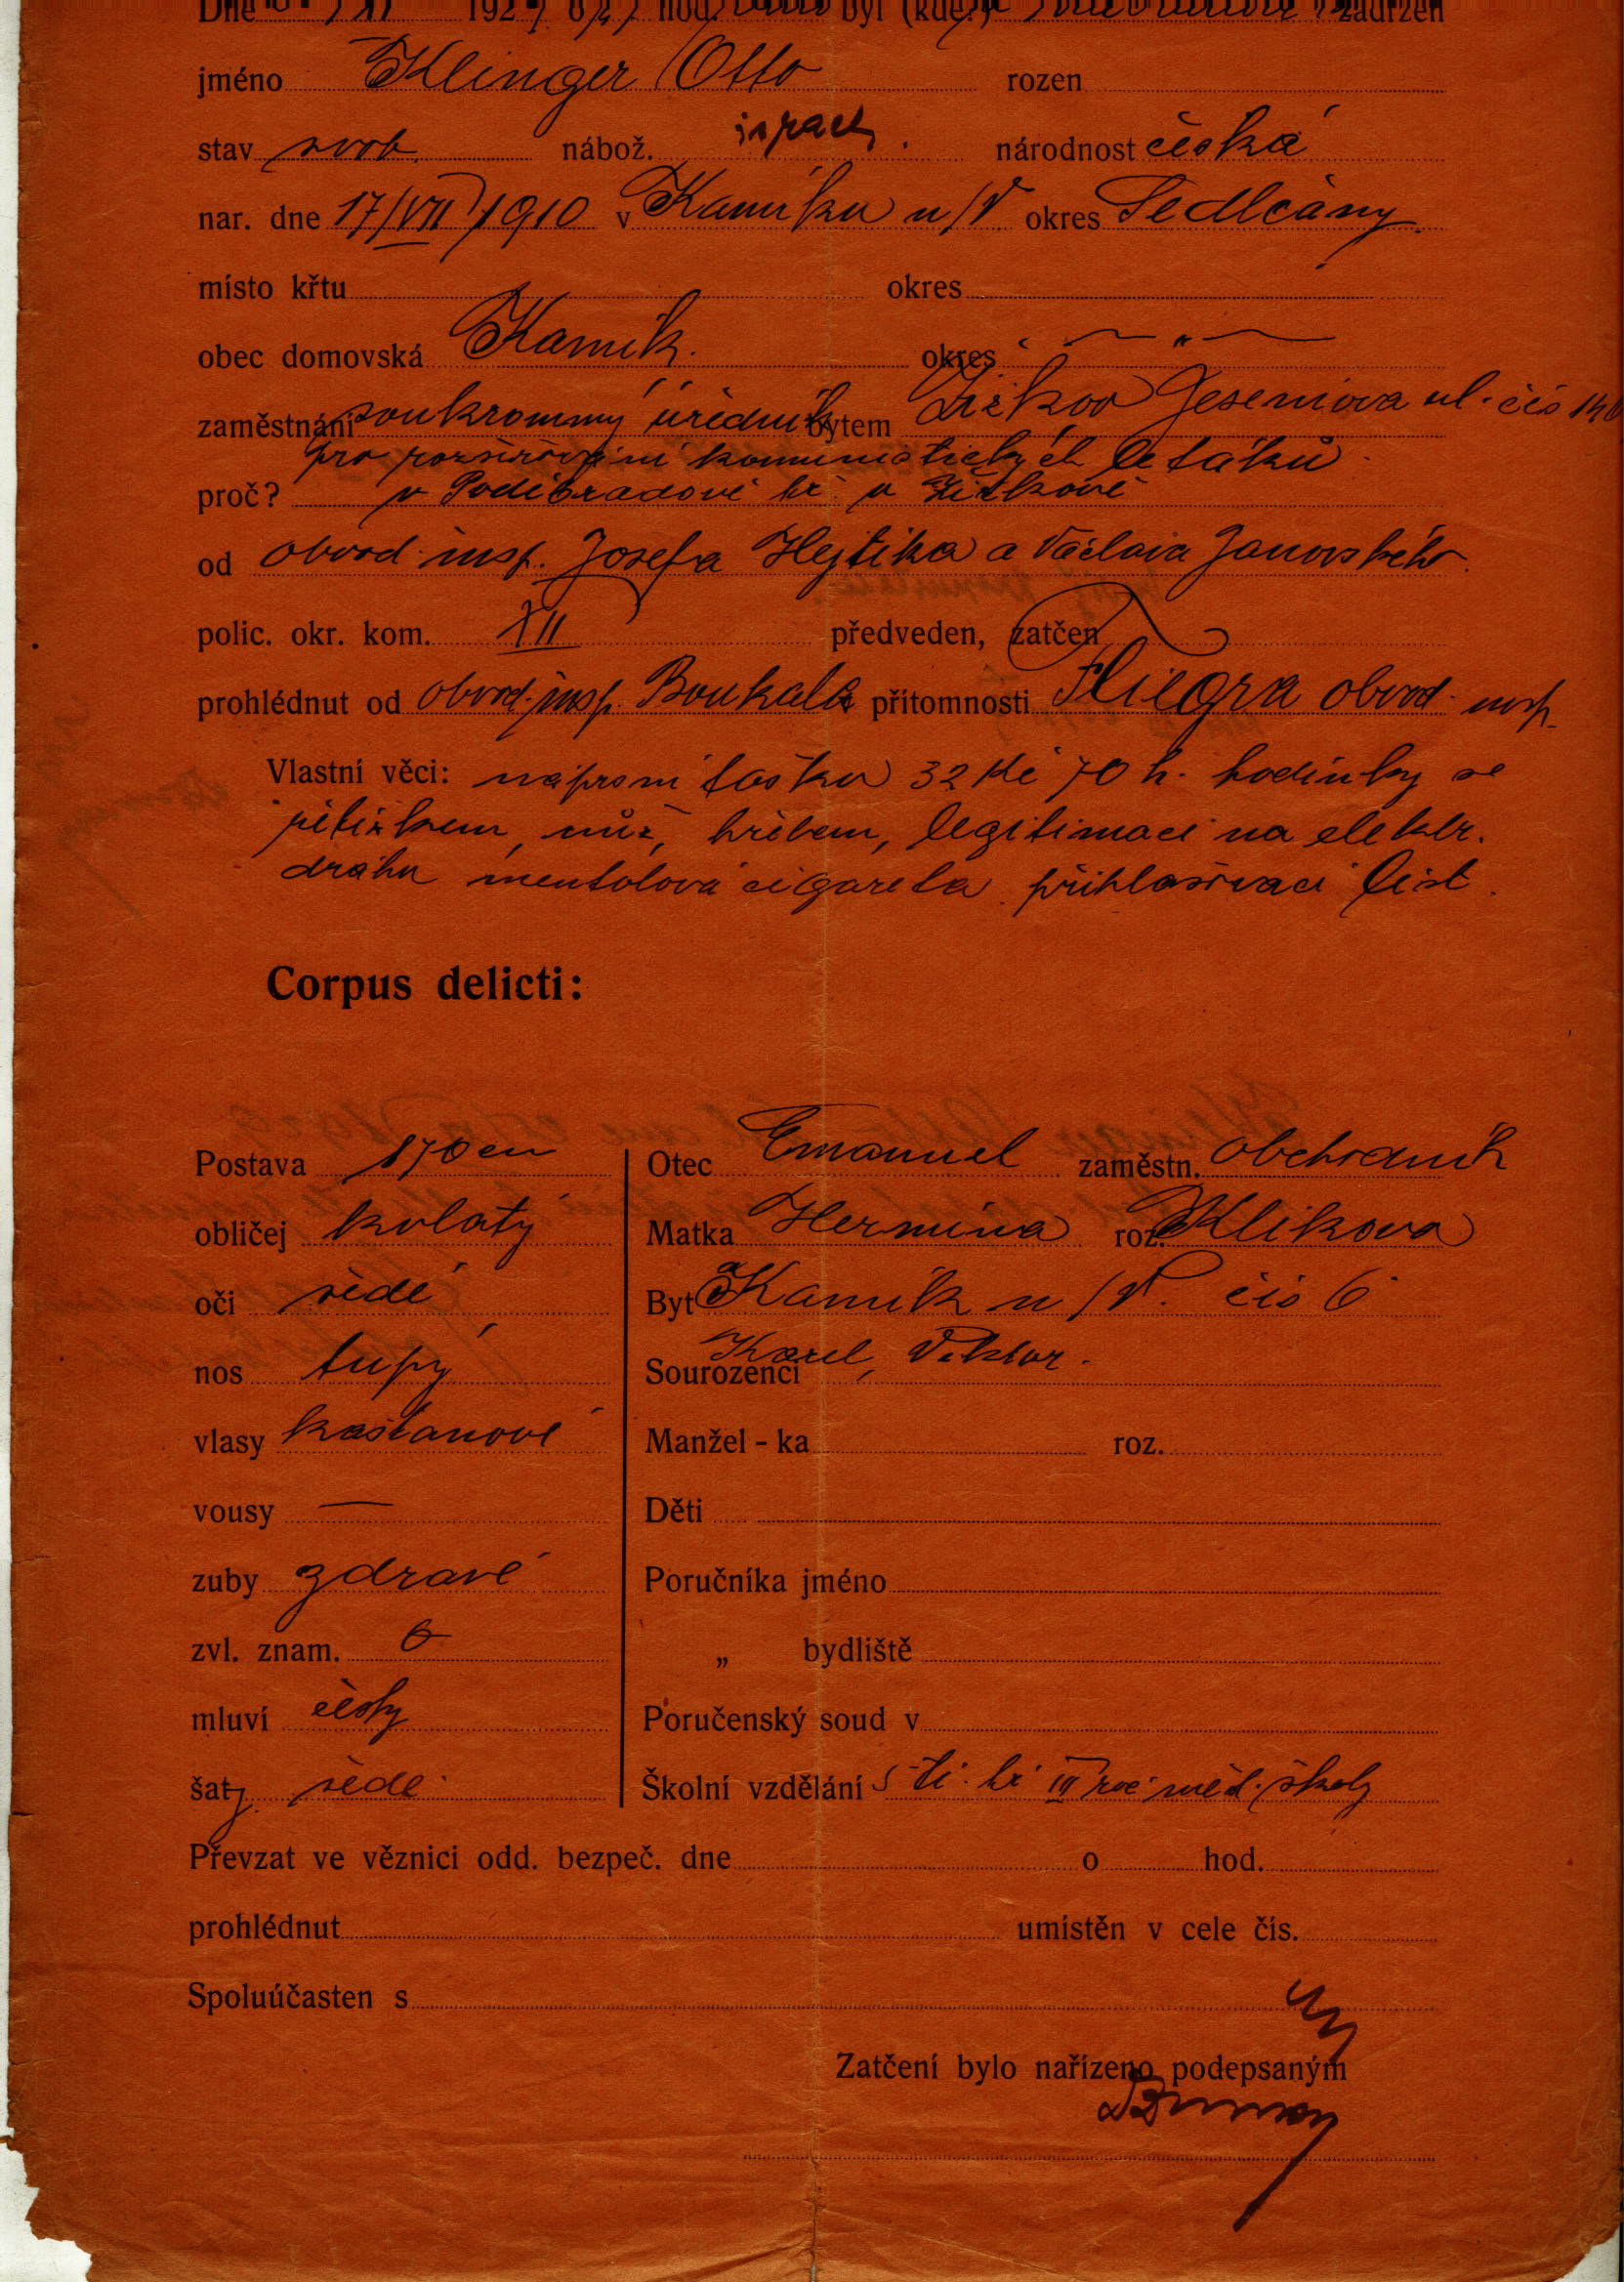 Dne 192 hod. byl (kde?) zadržen
jméno Klinger Otto rozen
stav svob. nábož. israel. národnost česká
nar. dne 17/VII 1910 v Kamíku n/V. okres Sedlčany
místo křtu okres
obec domovská Kamík. okres — " —
zaměstnání soukrommý úředník bytem Žižkov Jeseniova ul. čís
pro rozšiřování komunistických letáků
proč? v Poděbradově tř. v Žižkově
od obvod. insp. Josefa Hejtíka a Václava Janovského.
polic. okr. kom. XII předveden, zatčen
prohlédnut od obvod. insp. Boukala přítomnosti Fliegra obvod. insp.
Vlastní věci: náprsní tašku 32 Kč 70 h. hodinky se
řetízkem, nůž, hřeben, legitimaci na elektr.
dráhu mentolová cigareta přihlašovací list.
Corpus delicti:
Postava 170 cm Otec Emanuel zaměstn. obchodník
obličej kulatý Matka Hermína roz. Klikova
oči šedé Byt Kamík n/V. čís 6
nos tupý Sourozenci Karel, Viktor.
vlasy kaštanové Manžel - ka roz.
vousy — Děti
zuby zdravé Poručníka jméno
zvl. znam. 0 „ bydliště
mluví česky Poručenský soud v
šaty šedé Školní vzdělání 5 tř. III měšť. školy
Převzat ve věznici odd. bezpeč. dne o hod.
prohlédnut umístěn v cele čís.
Spoluúčasten s
Zatčení bylo nařízeno podepsaným